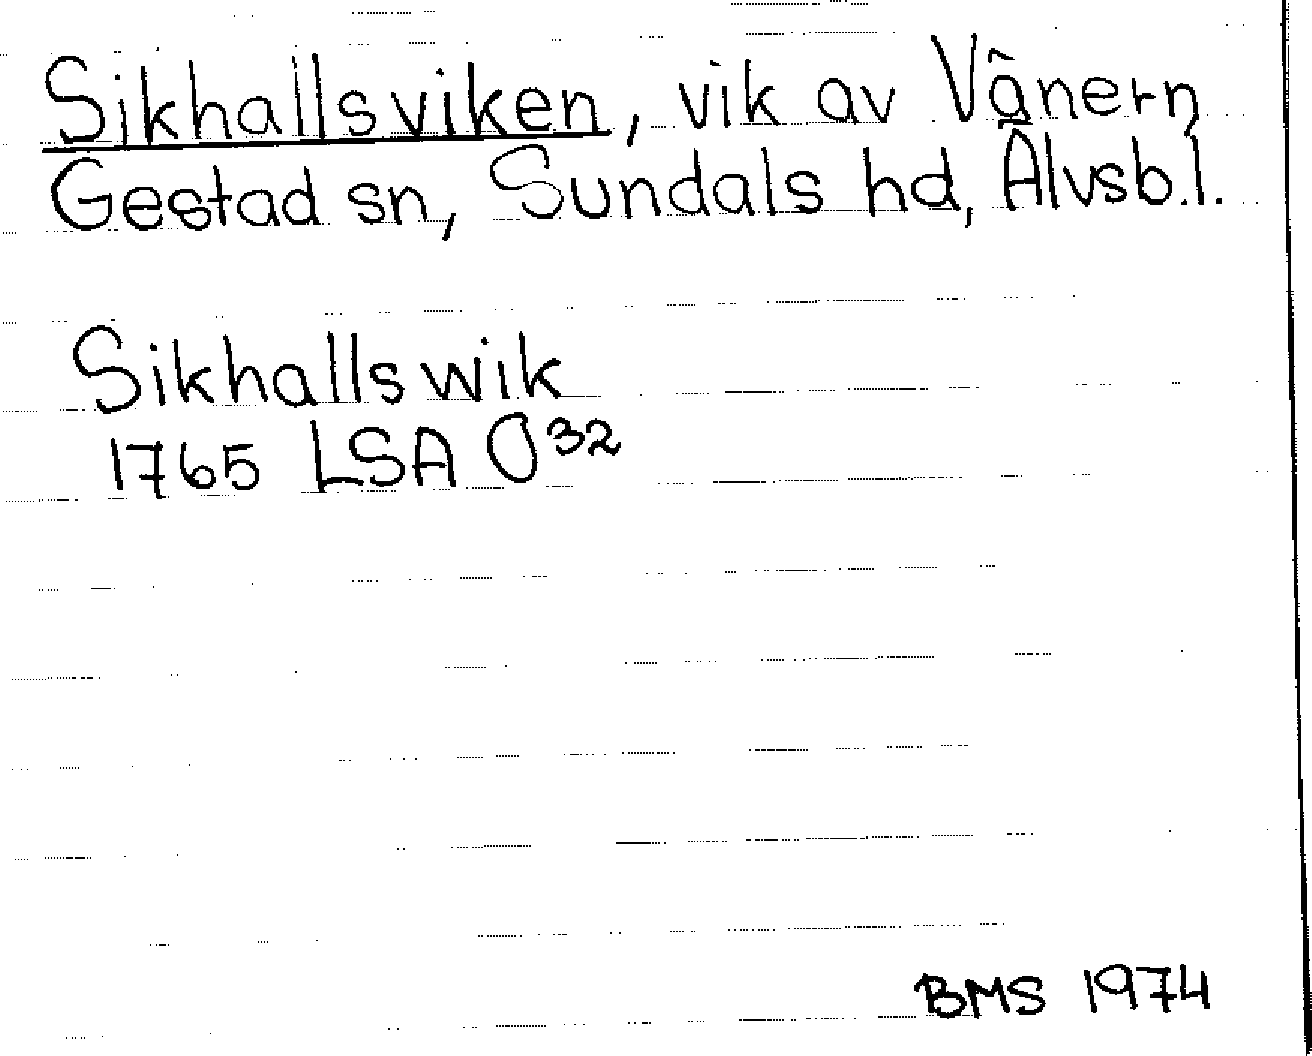 Sikhallsviken, vik av Vänern
Gestad sn, Sundals hd, Älvsb.l.
Sikhallswik
1765 LSA O32
BMS 1974